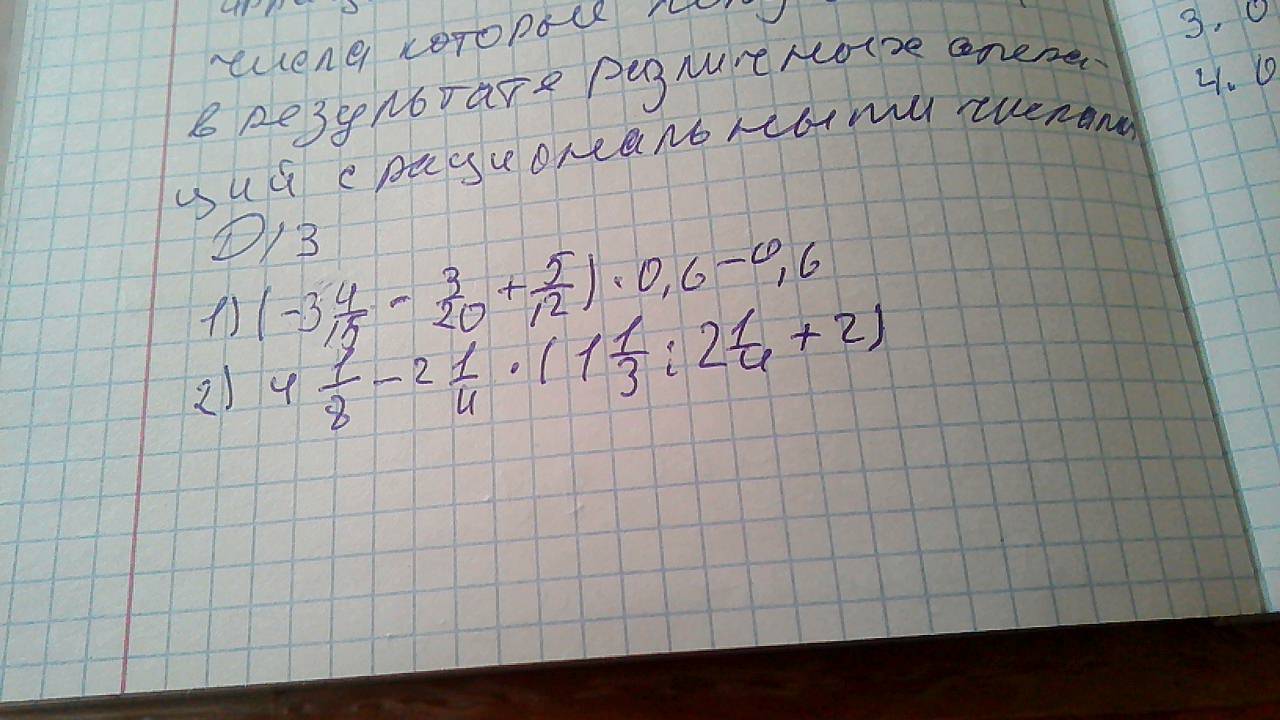 числа которые
в результате различных опера-
ций с рациональными числами
D/З
1) (-3 4/15 - 3/20 + 5/12) · 0,6 - 0,6
2) 4 1/8 - 2 1/4 · (1 1/3 : 2 1/4 + 2)
3. 0
4. 0